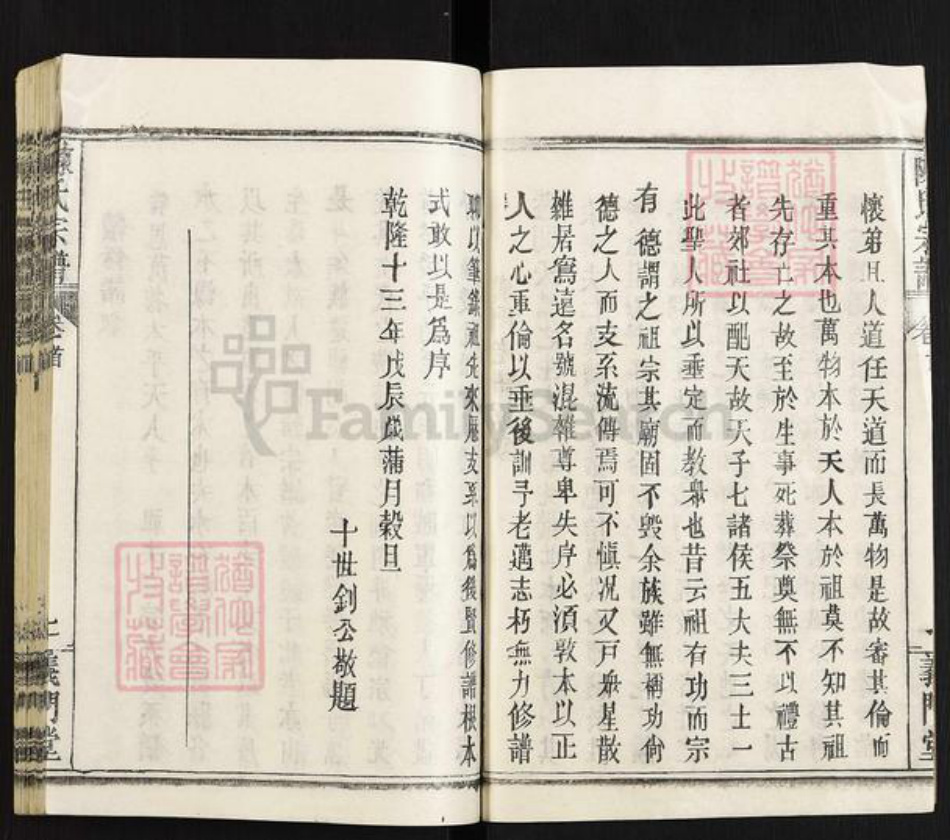 懷弟且人道任天道而長萬物是故審其倫而
重其本也萬物本於天人本於祖莫不知其祖
先存亡之故至於生事死葬祭奠無不以禮古
者郊社以配天故天子七諸侯五大夫三士一
此聖人所以垂定而教衆也昔云祖有功而宗
有德謂之祖宗其廟固不毀余族雖無稱功尙
德之人而支系流傳焉可不愼况又戸衆星散
雜居寫遠名號混雜尊卑失序必須敦本以正
人之心重倫以垂後訓予老邁志朽無力修譜
以筆錄祖先來歷支系以爲後賢修譜根本
式敢以是爲序
乾隆十三年戊辰歲蒲月穀旦
十世釗公敬題
陳氏宗譜
卷首
義門堂
陳氏宗譜
義門堂
FamilySearch